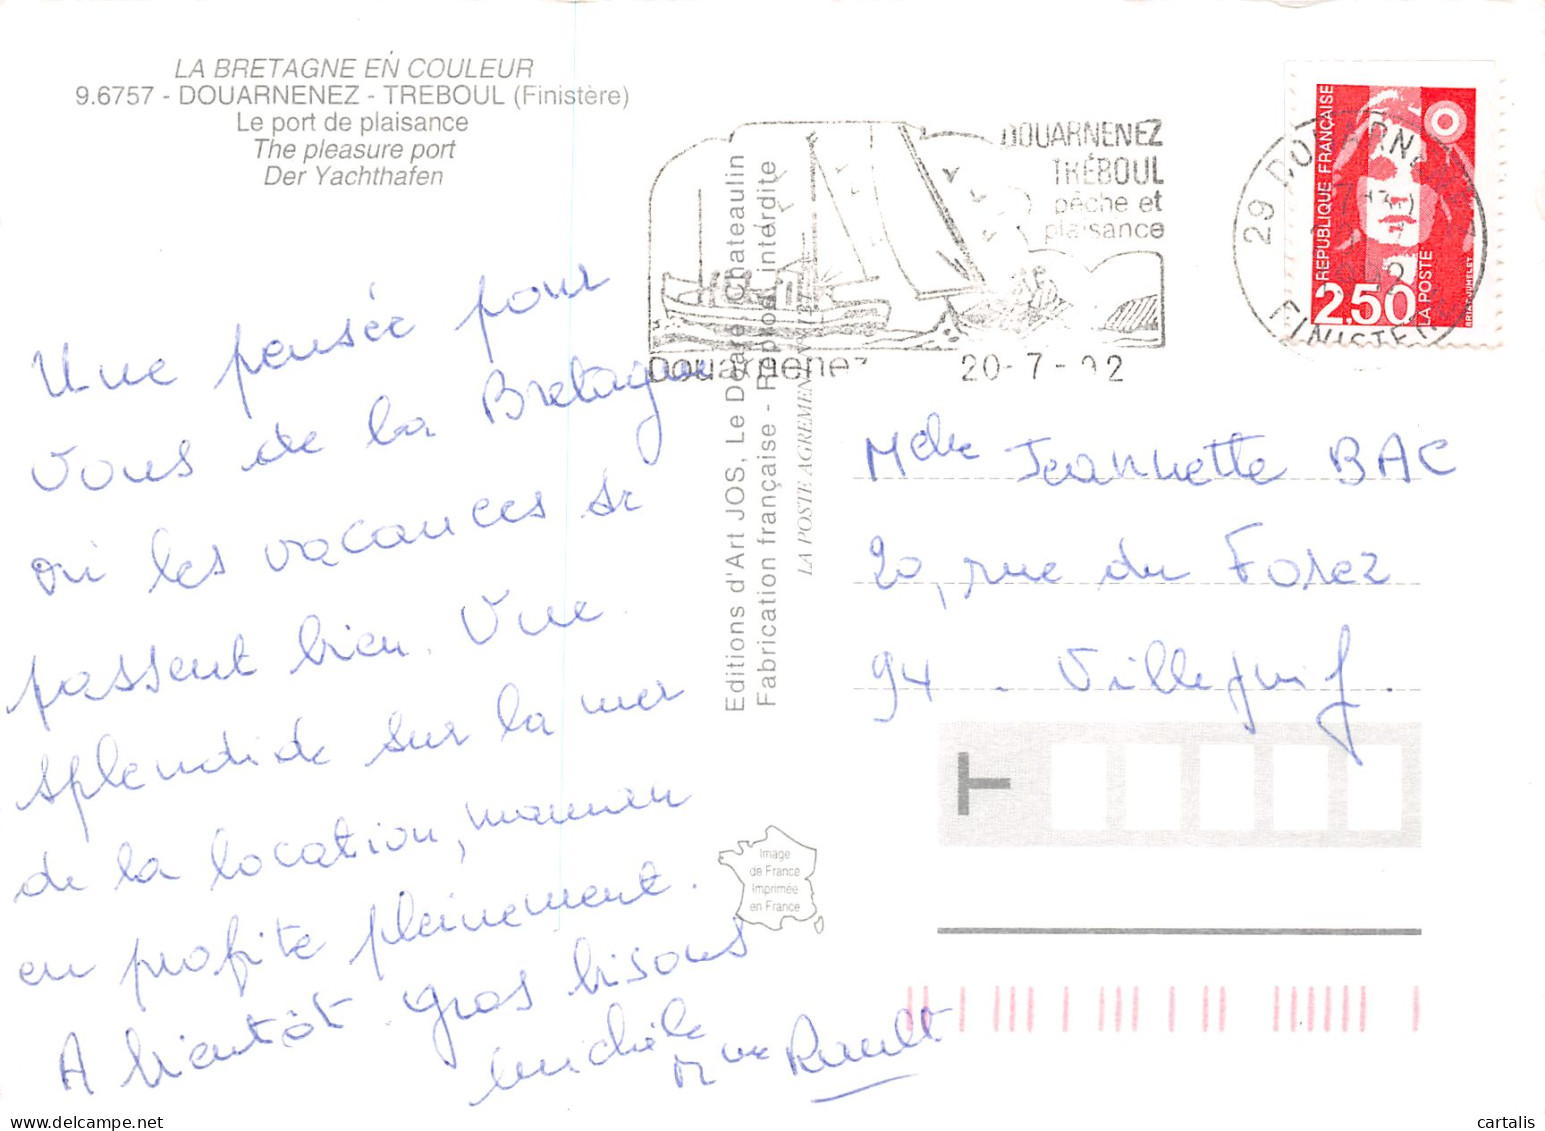 LA BRETAGNE EN COULEUR
9.6757 - DOUARNENEZ - TREBOUL (Finistère)
Le port de plaisance
The pleasure port
Der Yachthafen
Une pensée pour
vous de la Bretagne
où les vacances se
passent bien. Vue
splendide sur la mer
de la location, maman
en profite pleinement.
A bientôt gros bisous
Michèle
Mme Rault
Editions d'Art JOS, Le Doaré, Chateaulin
Fabrication française - Reprod. interdite
LA POSTE AGREMENT
Image
de France
Imprimée
en France
DOUARNENEZ
TRÉBOUL
pêche et
plaisance
Douarnenez
20-7-92
29 DOUARNENEZ
FINISTERE
REPUBLIQUE FRANÇAISE
2,50
LA POSTE
BRIAT-JUMELET
Melle Jeannette BAC
20, rue du Forez
94 - Villejuif.
T
cartalis